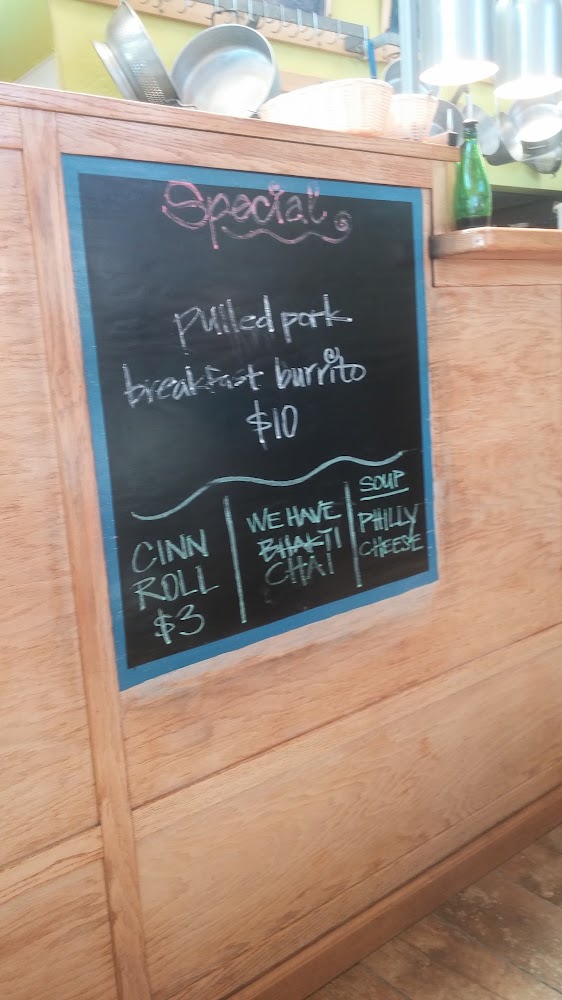 Special
Pulled pork
breakfast burrito
$10
CINN
ROLL
$3
WE HAVE
BHAKTI
CHAI
SOUP
PHILLY
CHEESE